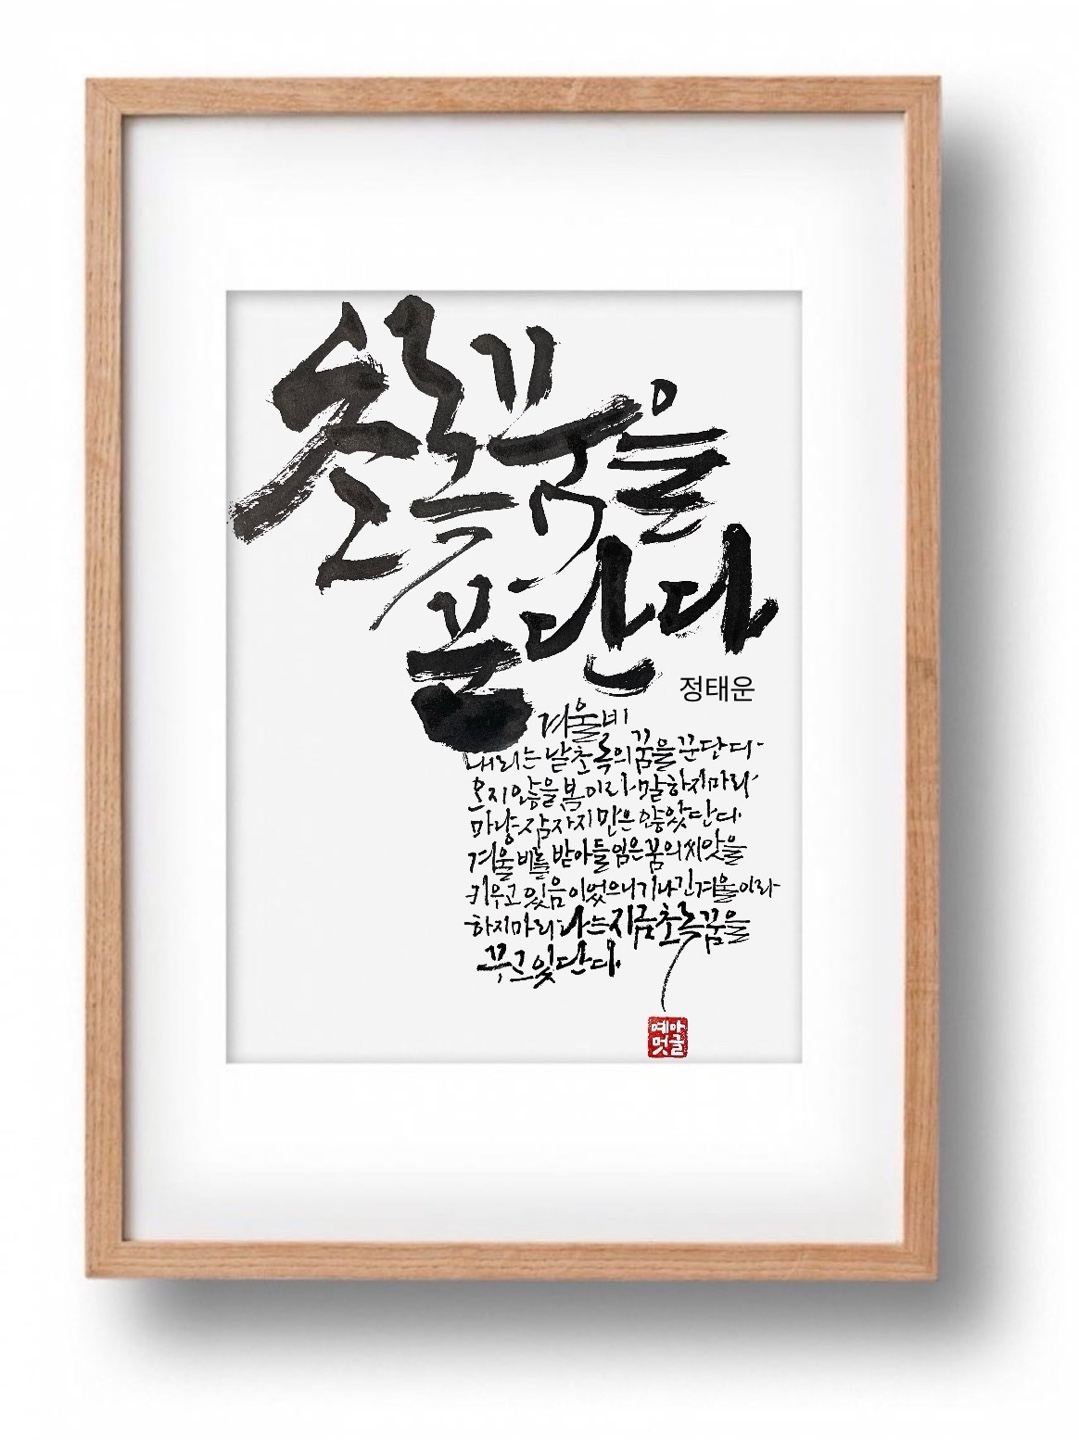 초록꿈을
꾼단다
정태운
겨울비
내리는 날 초록의 꿈을 꾼단다
오지 않을 봄이라 말하지 마라
마냥 잠자지만은 않았단다
겨울비를 받아들임은 꿈의 씨앗을
키우고 있음이었으니 기나긴 겨울이라
하지마라 나는 지금 초록꿈을
꾸고 있단다
예아
멋글